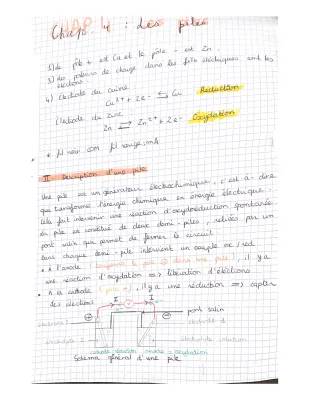 Chap 4 : Les piles
1) Le pôle + est Cu et le pôle - est Zn.
3) les porteurs de charge dans les fils électriques sont les
électrons
4) Electrode du cuivre
Cu²⁺ + 2e⁻ ⇆ Cu Reduction
Electrode du Zinc
Zn ⇄ Zn²⁺ + 2e⁻ Oxydation
* fil noir COM fil rouge: mA
II Description d'une pile
Une pile est un générateur électrochimique, c'est-à-dire
que transforme l'énergie chimique en énergie électrique.
Cela fait intervenir une réaction d'oxydoréduction spontanée.
Une pile est constitué de deux demi-piles, reliées par un
pont salin qui permet de fermer le circuit.
Dans chaque demi-pile intervient un couple ox/red
• A l'anode (toujours le pôle ⊖ dans une pile), il y a
une réaction d'oxydation => libération d'électrons
• A la cathode (pôle +), il y a une réduction => capter
des électrons
I I
⊕ ⊖ pont salin
électrode 1 électrode 2
cathode = réduction anode = oxydation
Schéma général d'une pile